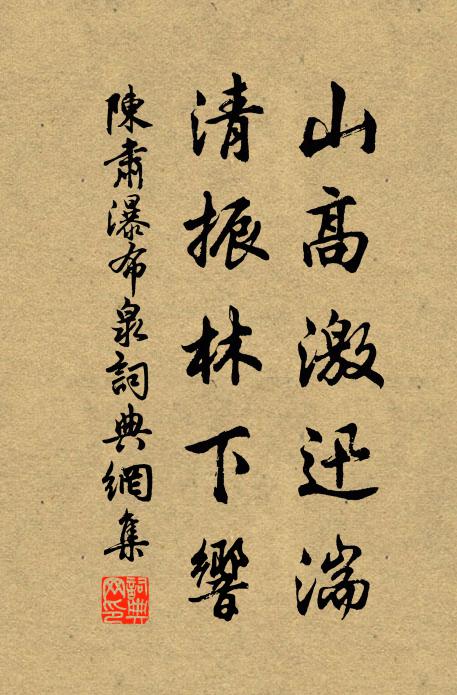 山高激迅湍
清振林下響
陳肅瀑布泉詞典網集
詞典網印